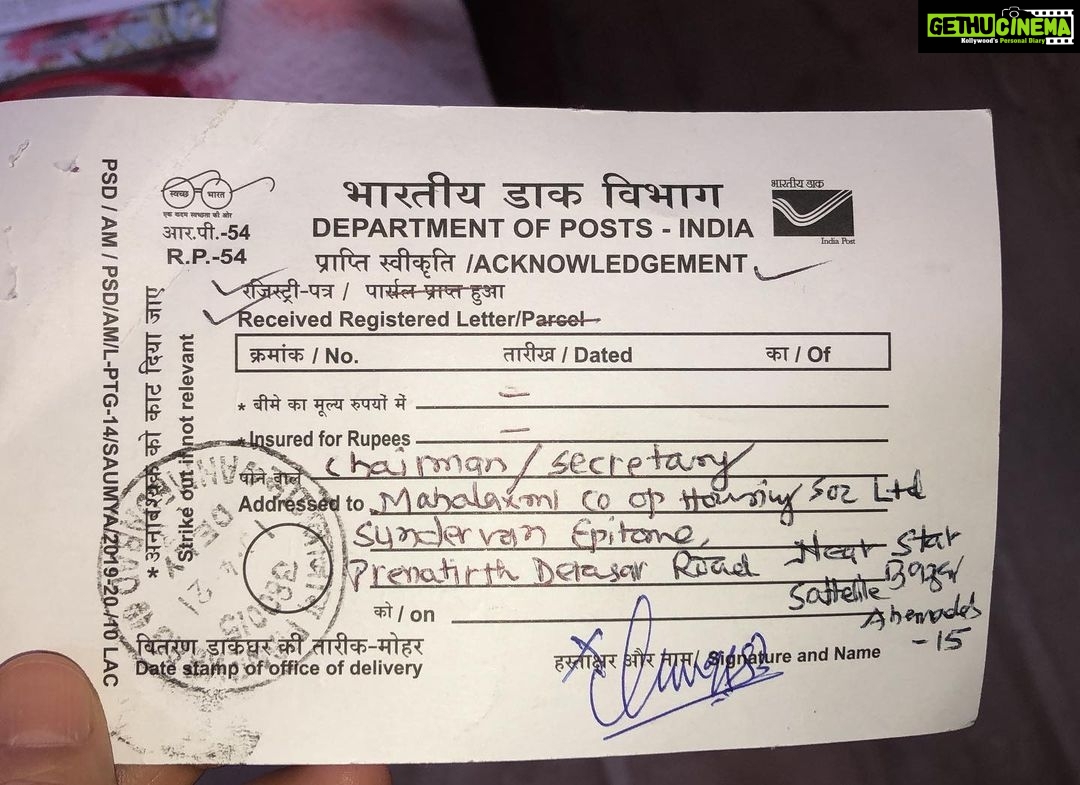 GETHUCINEMA
Kollywood's Personal Diary
PSD / AM / PSD/AM/L-PTG-14/SAUMYA/2019-20-/10 LAC
स्वच्छ भारत
एक कदम स्वच्छता की ओर
आर.पी.-54
R.P.-54
भारतीय डाक विभाग
DEPARTMENT OF POSTS - INDIA
भारतीय डाक
India Post
प्राप्ति स्वीकृति /ACKNOWLEDGEMENT
रजिस्ट्री-पत्र / पार्सल प्राप्त हुआ
Received Registered Letter/Parcel
क्रमांक / No. तारीख / Dated का / Of
* बीमे का मूल्य रुपयों में
* Insured for Rupees
* अनावश्यक को काट दिया जाए
Strike out if not relevant
पाने वाले chairman / secretary
Addressed to Mahalaxmi co op Housing Soz Ltd
Sundervan Epitome,
Prenatirth Derasar Road Near Star
Sattelite Bazar
Ahemadabad
-15
को / on
वितरण डाकघर की तारीक-मोहर
Date stamp of office of delivery
हस्ताक्षर और नाम/ Signature and Name